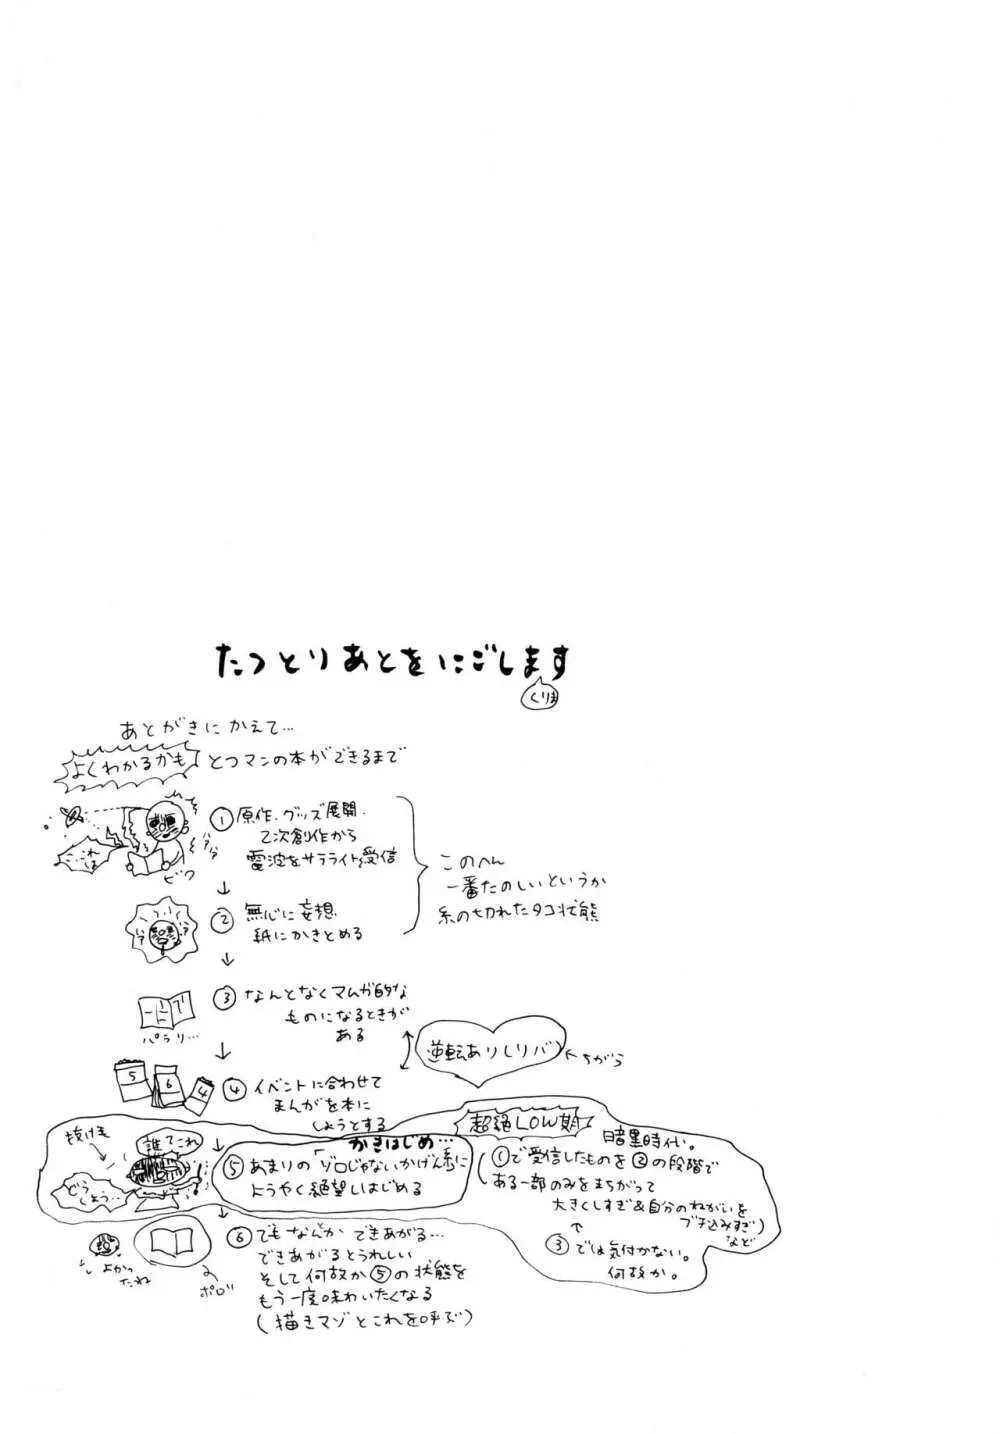 たつとりあとをにごします
くりま
あとがきにかえて…
よくわかるかも
とつマンの本ができるまで
① 原作、グッズ展開、
乙次創作から
電波をサテライト受信
これは
ビク
↓
② 無心に妄想
紙にかきとめる
このへん
一番たのしいというか
糸の切れたタコ状態
↓
パラリ…
③ なんとなくマムガ的な
ものになるときが
ある
↓
逆転ありしリバ
ちがう
5 6 4
④ イベントに合わせて
まんがを本に
しようとする
↓
抜け毛
誰てこれ
どうしよう…
かきはじめ…
⑤ あまりの「ゾロじゃないかげん」に
ようやく絶望しはじめる
超絶LOW期
暗黒時代。
①で受信したものを②の段階で
ある一部のみをまちがって
大きくしすぎ&自分のねがいを
ブチ込みすぎ
など
↑
③では気付かない。
何故か。
↓
よかったね
ポロリ
⑥ でもなんとかできあがる…
できあがるとうれしい
そして何故か⑤の状態を
もう一度味わいたくなる
(描きマゾとこれを呼ぶ)